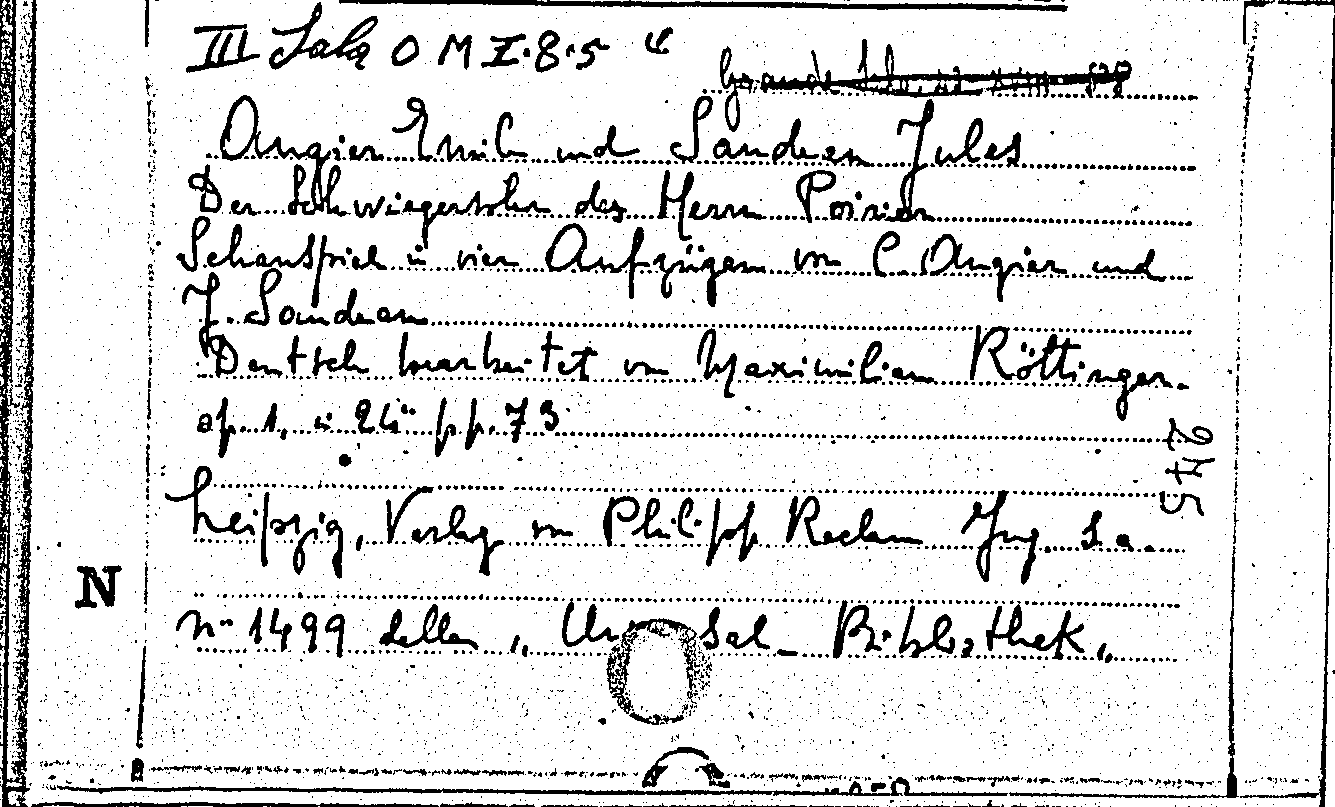 III Sala O M I.8.5 "
Grande Sala
Augier Emil und Sandeau Jules
Der Schwiegersohn des Herrn Poirier
Schauspiel in vier Aufzügen von E. Augier und
J. Sandeau
Deutsch bearbeitet von Maximilian Röttinger.
op. 1, in 24° pp. 73
245
Leipzig, Verlag von Philipp Reclam Jug. s.a.
N
n° 1499 della „ Un sal-Bibliothek „